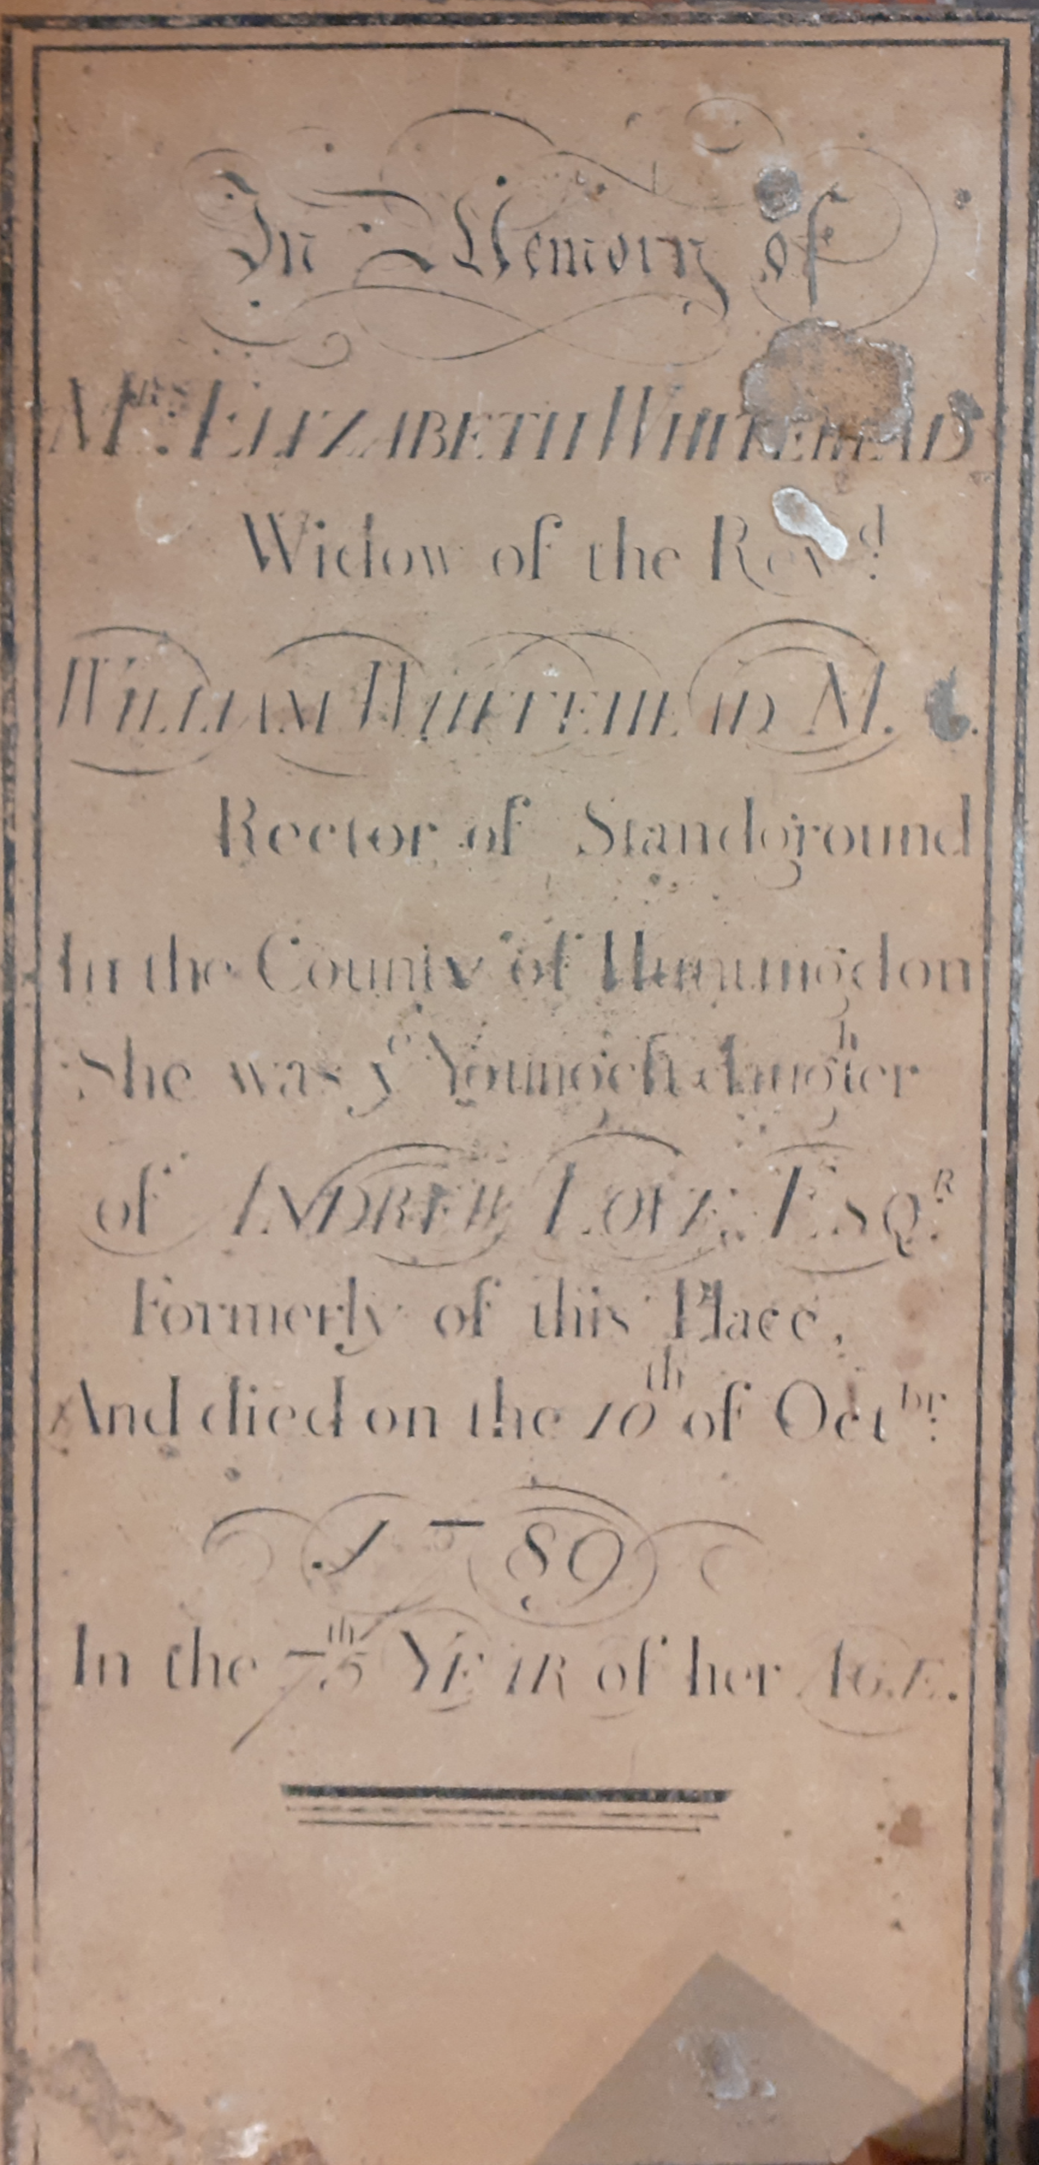 In Memory of
Mrs. ELIZABETH WHITEHEAD
Widow of the Revd.
WILLIAM WHITEHEAD M.
Rector of Standground
In the County of Huntingdon
She was ye Youngest daughter
of ANDREW LOVE, ESQR.
Formerly of this Place,
And died on the 10th of Octbr.
1789
In the 75th YEAR of her AGE.